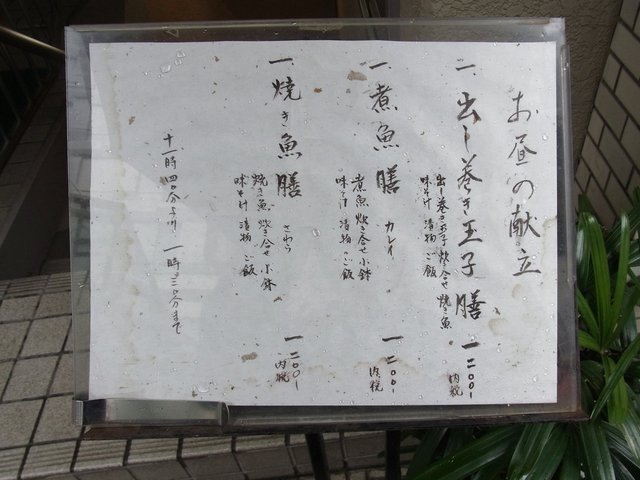 お昼の献立
一 出し巻き玉子膳 一二〇〇-
出し巻き玉子 炊き合せ 焼き魚
味そ汁 漬物 ご飯
内税
一 煮魚膳 カレイ 一二〇〇-
煮魚 炊き合せ 小鉢
味そ汁 漬物 ご飯
内税
一 焼き魚膳 さわら 一二〇〇-
焼き魚 炊き合せ 小鉢
味そ汁 漬物 ご飯
内税
十一時四〇分より 一時三〇分まで